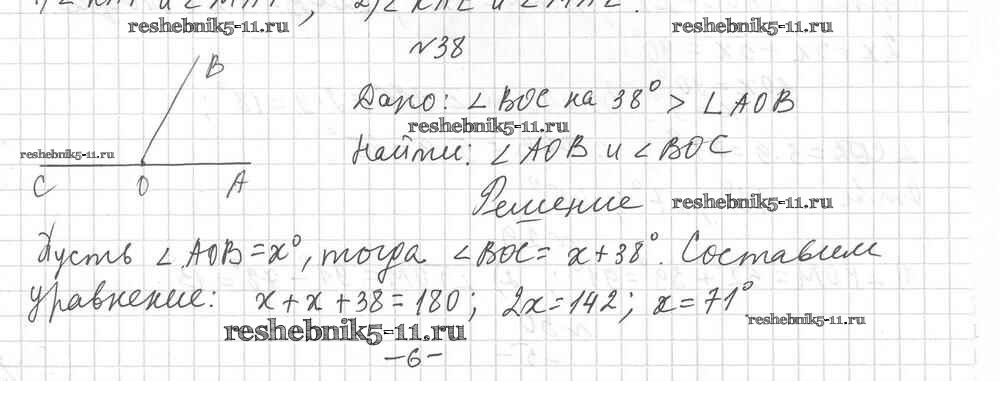 1) ∠ и ∠ ; 2) ∠ и ∠ .
reshebnik5-11.ru reshebnik5-11.ru
N38
B
Дано: ∠BOC на 38° > ∠AOB
reshebnik5-11.ru
reshebnik5-11.ru
Найти: ∠AOB и ∠BOC
C O A
Решение reshebnik5-11.ru
Пусть ∠AOB = x°, тогда ∠BOC = x + 38°. Составим
уравнение: x + x + 38 = 180; 2x = 142; x = 71°
reshebnik5-11.ru
reshebnik5-11.ru
-6-